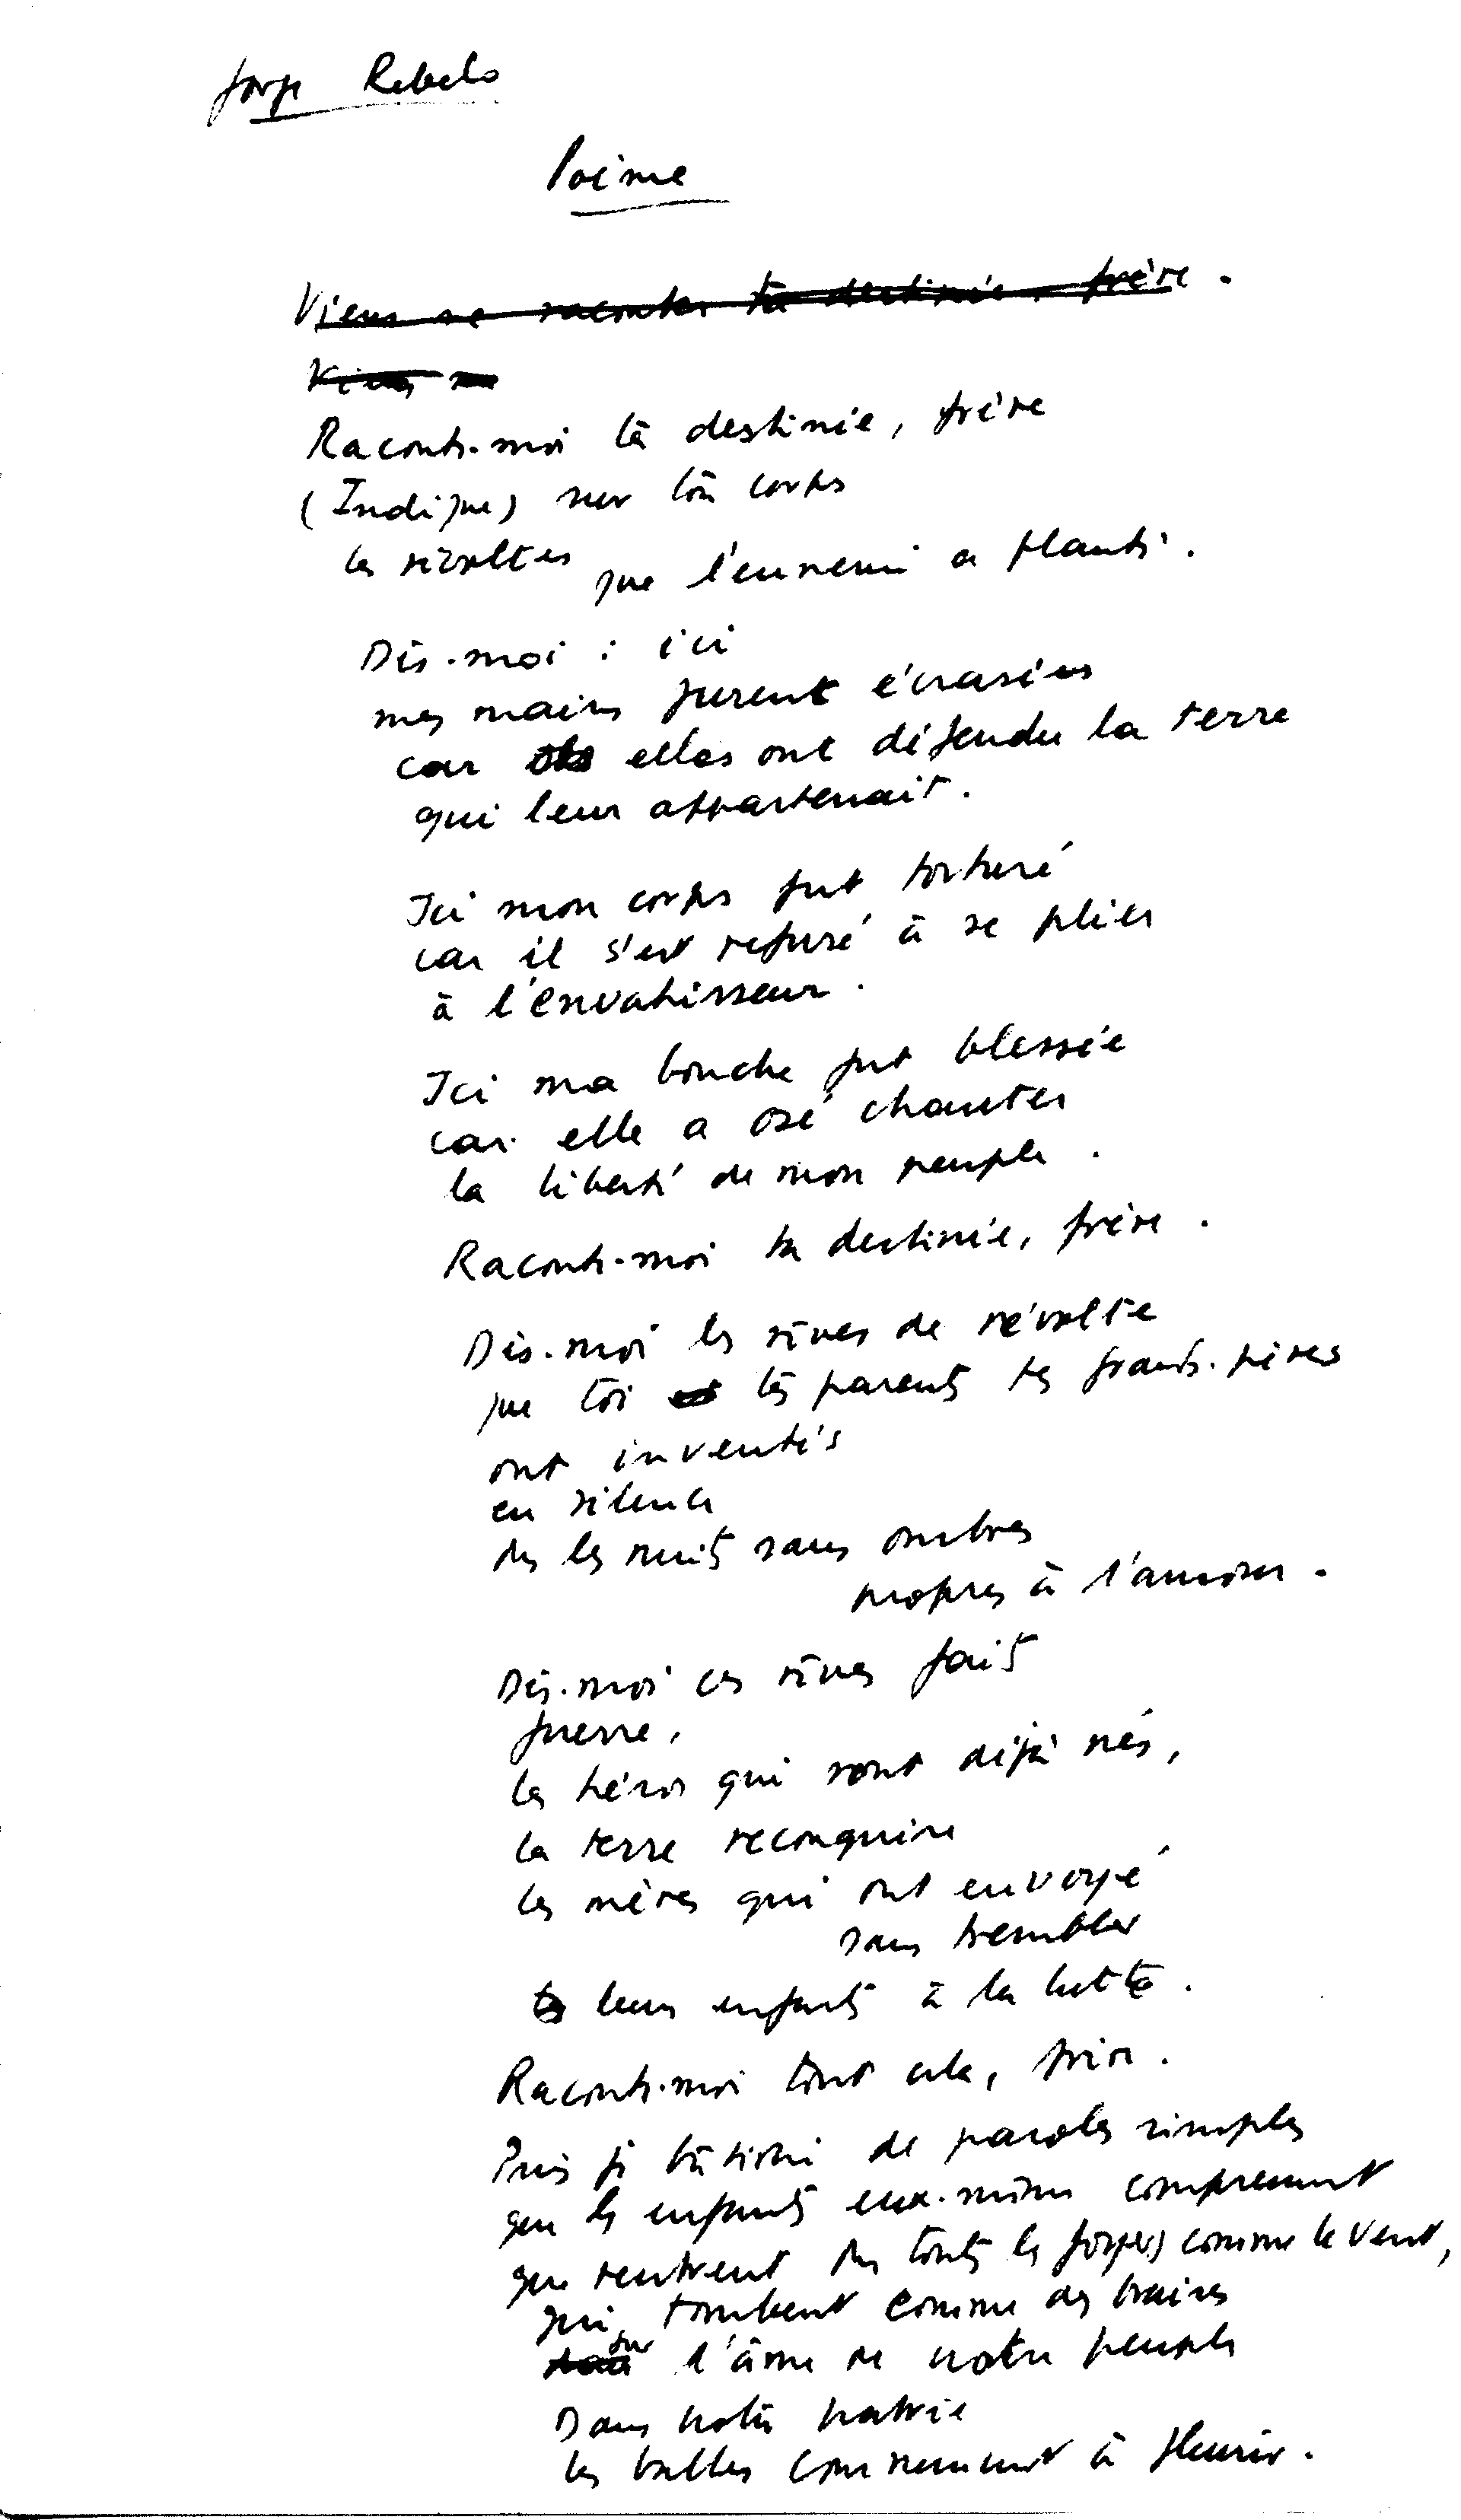 Jorge Rebelo
Poème
Viens me raconter ta destinée, frère.
Viens me
Raconte-moi ta destinée, frère
(Indique) sur ton corps
les révoltes que l'ennemi a planté.
Dis-moi : ici
mes mains furent écrasées
car elles ont défendu la terre
qui leur appartenait.
Ici mon corps fut torturé
car il s'est refusé à se plier
à l'envahisseur.
Ici ma bouche fut blessée
car elle a osé chanter
la liberté de mon peuple.
Raconte-moi ta destinée, frère.
Dis-moi les rêves de révolte
que toi et tes parents tes grands-pères
ont inventés
en silence
ds les nuits sans ombres
propres à l'amour.
Dis-moi ces rêves faits
guerre,
les héros qui sont déjà nés,
la terre reconquise
les mères qui ont envoyé
sans trembler
leurs enfants à la lutte.
Raconte-moi tout cela, frère.
Puis je de paroles simples
que les enfants eux-mêmes comprennent
que rentrent ds toutes les comme le vent,
qui tombent comme des braises
sur l'âme de notre peuple
Dans notre patrie
les balles commencent à fleurir.